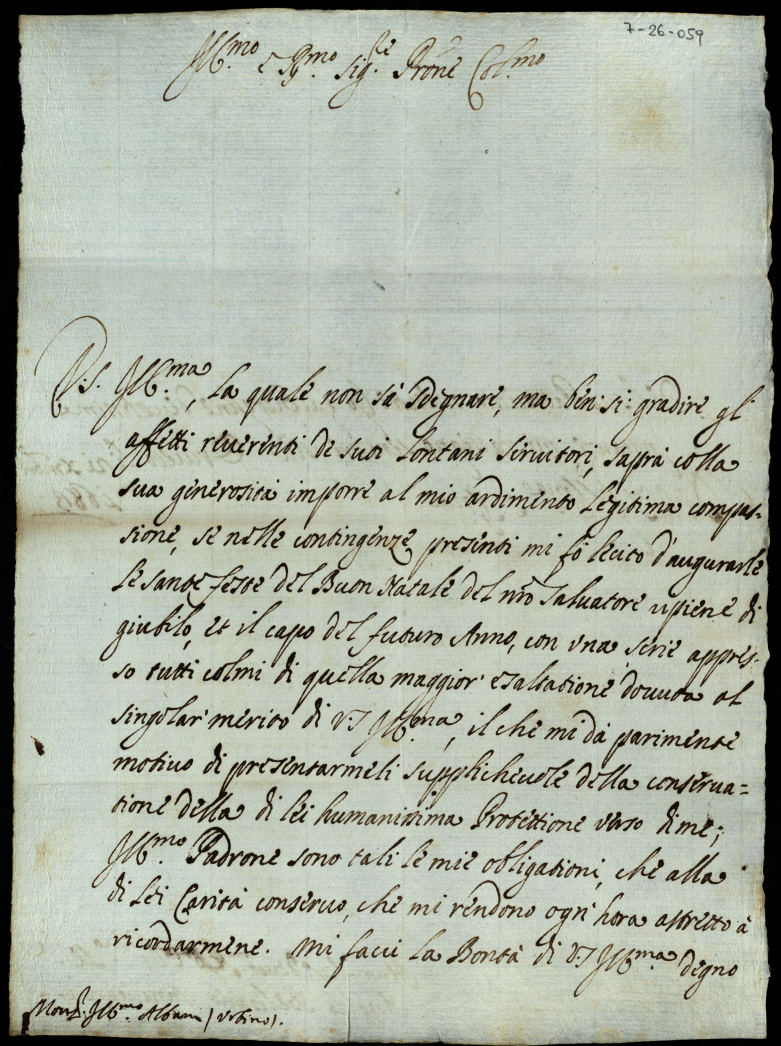 7-26-059
Ill.mo e R.mo Sig.re Pron̄e Col.mo
V.S. Ill.ma, la quale non sà sdegnare, ma ben sì gradire gl'
affetti reverenti de suoi lontani servitori, saprà colla
sua generosità imporre al mio ardimento legitima compas-
sione, se nelle contingenze presenti mi fò lecito d'augurarle
le sante feste del Buon Natale del nr̄o Salvatore ripiene di
giubilo, et il capo del futuro Anno, con una serie appres-
so tutti colmi di quella maggior esaltatione dovuta al
singolar merito di V.S Ill.ma, il che mi dà parimente
motivo di presentarmeli supplichevole della conserva=
tione della di lei humanissima Protettione verso di me;
Ill.mo Padrone sono tali le mie obligationi, che alla
di Lei Carità conservo, che mi rendono ogn'hora astretto à
ricordarmene. Mi facci la Bontà di V.S Ill.ma degno
Mons.r Ill.mo Albani (Urbino).